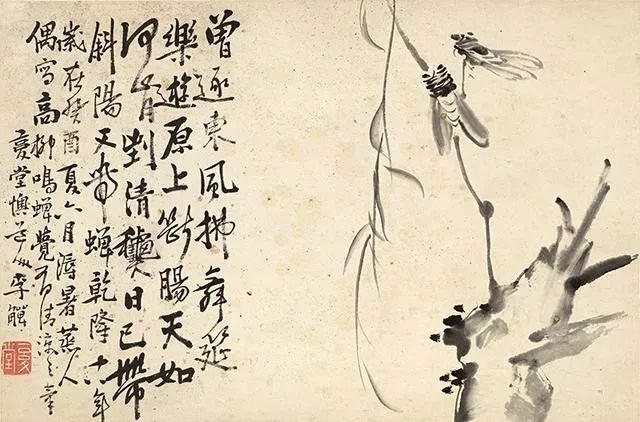 曾逐東風拂舞筵
樂遊原上斷腸天如
何肯到清龝日已帶
斜陽又帶蟬乾隆十八年
歲在癸酉夏六月溽暑蒸人
偶寫高柳鳴蟬覺有清涼之意
復堂懊道人李鱓